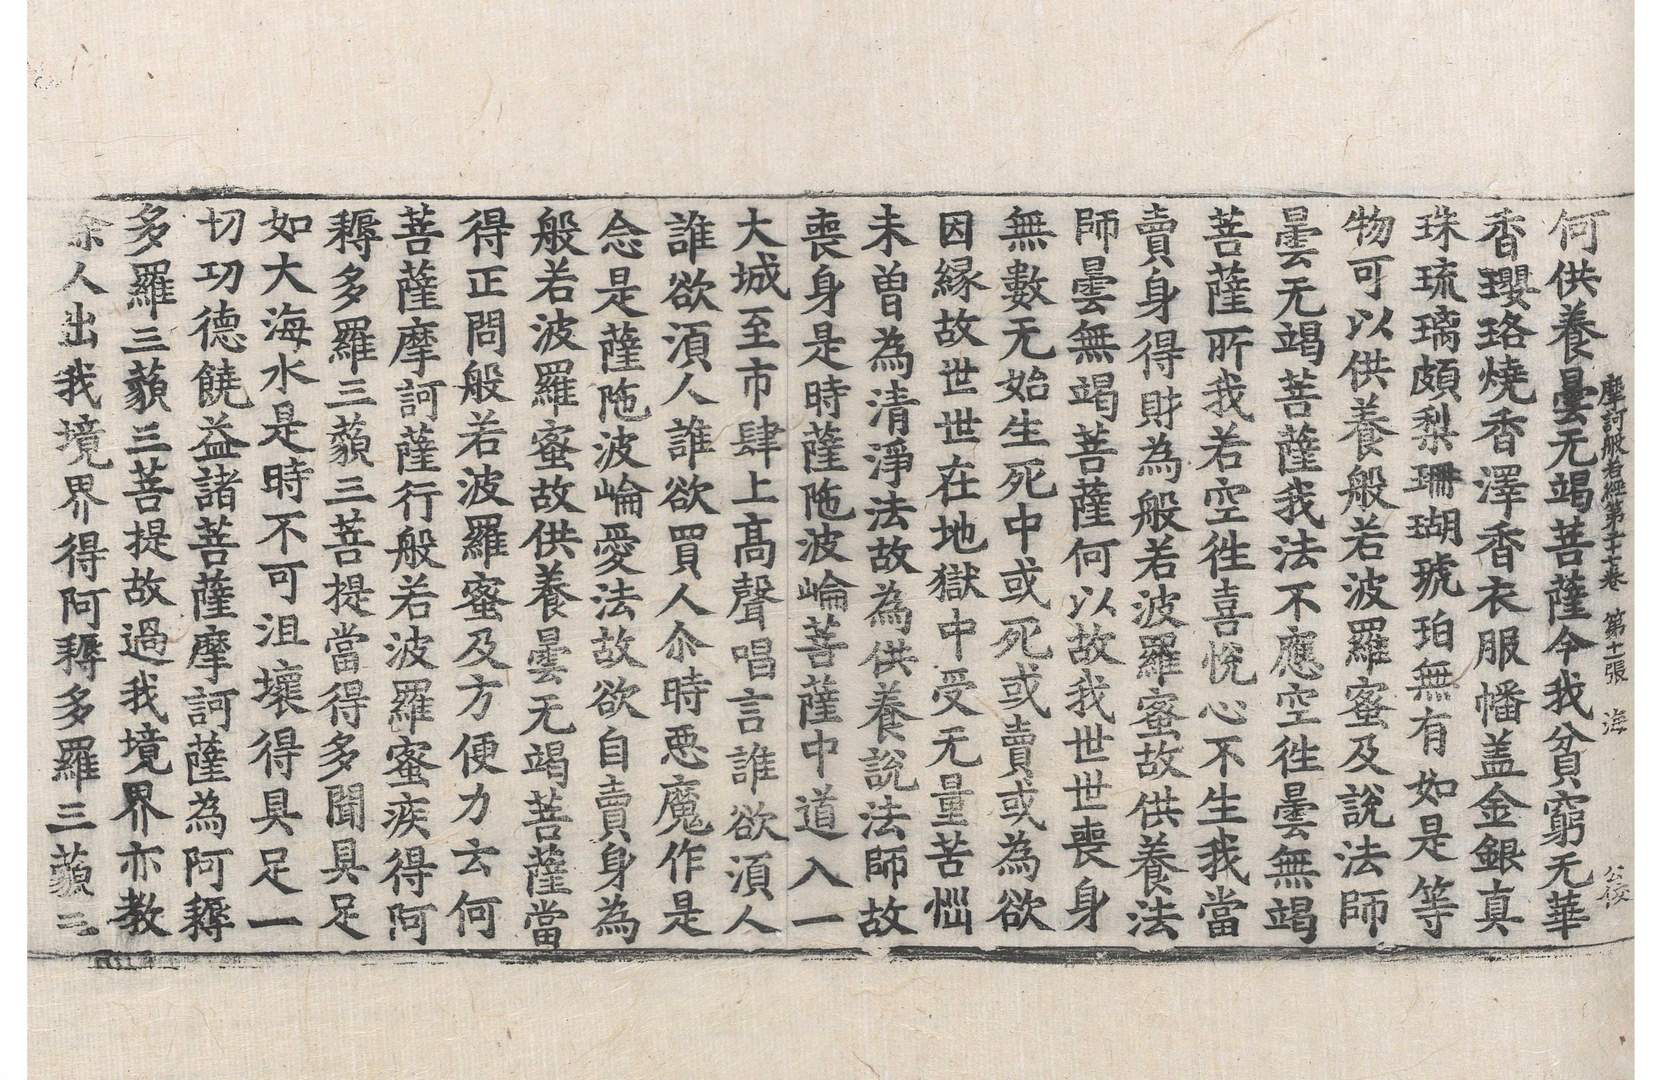 摩訶般若經第三十七卷 第十一張 海
何供養曇无竭菩薩今我貧窮无華
香瓔珞燒香澤香衣服幡盖金銀真
珠琉璃頗梨珊瑚琥珀無有如是等
物可以供養般若波羅蜜及說法師
曇无竭菩薩我法不應空徃曇無竭
菩薩所我若空徃喜悅心不生我當
賣身得財為般若波羅蜜故供養法
師曇無竭菩薩何以故我世世喪身
無數无始生死中或死或賣或為欲
因緣故世世在地獄中受无量苦惱
未曽為清淨法故為供養說法師故
喪身是時薩陁波崘菩薩中道入一
大城至市肆上髙聲唱言誰欲湏人
誰欲湏人誰欲買人尒時悪魔作是
念是薩陁波崘愛法故欲自賣身為
般若波羅蜜故供養曇无竭菩薩當
得正問般若波羅蜜及方便力云何
菩薩摩訶薩行般若波羅蜜疾得阿
耨多羅三藐三菩提當得多聞具足
如大海水是時不可沮壞得具足一
切功德饒益諸菩薩摩訶薩為阿耨
多羅三藐三菩提故過我境界亦教
餘人出我境界得阿耨多羅三藐三